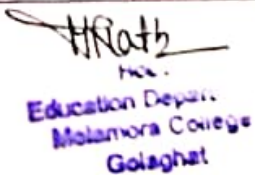 HRath
Education Depart.
Melamora College
Golaghat